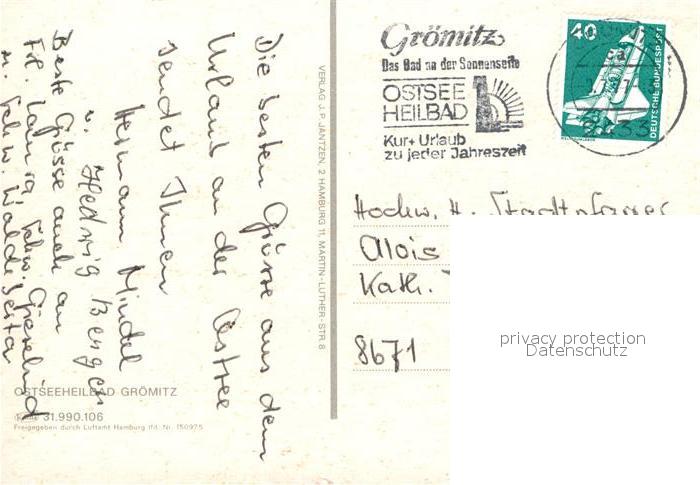 Die besten Grüsse aus dem
Urlaub an der Ostsee
sendet Ihnen
Hermann Mindel
u. Hedwig Berger
Beste Grüsse auch an
Frl. Schw.
u. Schw.
OSTSEEHEILBAD GRÖMITZ
31.990.106
Freigegeben durch Luftamt Hamburg lfd. Nr. 150975
VERLAG J. P. JANTZEN, 2 HAMBURG 11, MARTIN-LUTHER-STR. 8
Grömitz
Das Bad an der Sonnenseite
OSTSEE
HEILBAD
Kur+Urlaub
zu jeder Jahreszeit
40
DEUTSCHE BUNDESPOST
Hochw. H. Stadtpfarrer
Alois
Kath.
8671
privacy protection
Datenschutz